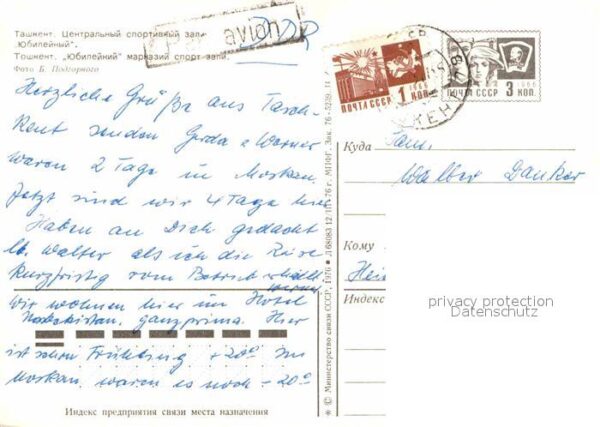 Ташкент. Центральный спортивный зал
„Юбилейный".
Тошкент. „Юбилейний" марказий спорт зали.
Фото Б. Подгорного
Par avion
DDR
Herzliche Grüße aus Tasch-
kent senden Gerda + Werner
waren 2 Tage in Moskau.
Jetzt sind wir 4 Tage hier
Haben an Dich gedacht
lb. Walter als ich die Reise
kurzfristig vom Betrieb erhielt
Wir wohnen hier im Hotel
Usbekistan, ganz prima. Hier
ist schon Frühling +20° In
Moskau waren es noch -20°
Индекс предприятия связи места назначения
© Министерство связи СССР, 1976
ПОЧТА СССР 1 КОП.
1966
ПОЧТА СССР 3 КОП.
1966
Куда
Fam.
Walter Danker
Кому
Индекс
privacy protection
Datenschutz